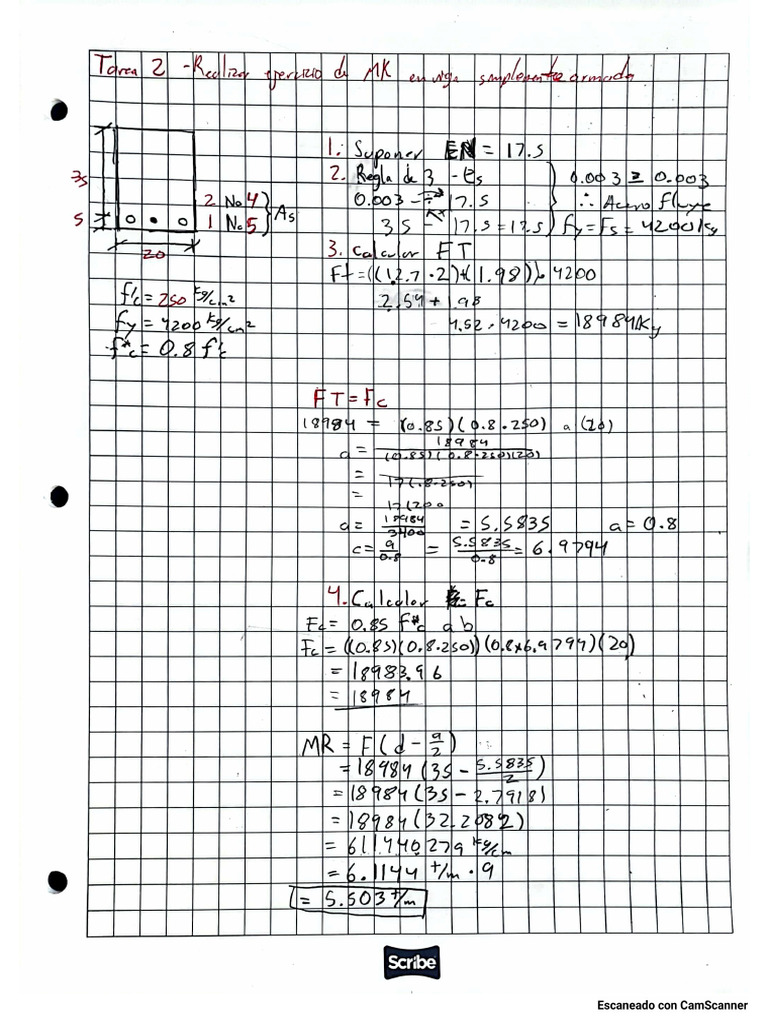 Tarea 2 - Realizar ejercicio de MR en viga simplemente armada
1. Suponer EN = 17.5
2. Regla de 3 - es
0.003 - 17.5
35 - 17.5 = 17.5
0.003 ≥ 0.003
∴ Acero fluye
fy = Fs = 4200 Kg
35
5
2 No 4
1 No 5
As
20
3. Calcular FT
Ft = ((1.27 · 2) + (1.98)) · 4200
2.54 + 1.98
4.52 · 4200 = 18984 Kg
f'c = 250 kg/cm2
fy = 4200 kg/cm2
f*c = 0.8 f'c
FT = Fc
18984 = (0.85)(0.8 · 250) a (20)
a = 18984 / (0.85)(0.8 · 250)(20)
= 17(.8 · 250)
= 17(200
a = 18984 / 3400 = 5.5835 a = 0.8
c = a / 0.8 = 5.5835 / 0.8 = 6.9794
4. Calcular Fc
Fc = 0.85 f*c a b
Fc = ((0.85)(0.8 · 250))(0.8 x 6.9794)(20)
= 18983.96
= 18984
MR = F(d - a/2)
= 18984 (35 - 5.5835/2)
= 18984 (35 - 2.7918)
= 18984 (32.2082)
= 611440.279 kg/cm
= 6.1144 t/m · 9
= 5.503 t/m
Scribe
Escaneado con CamScanner